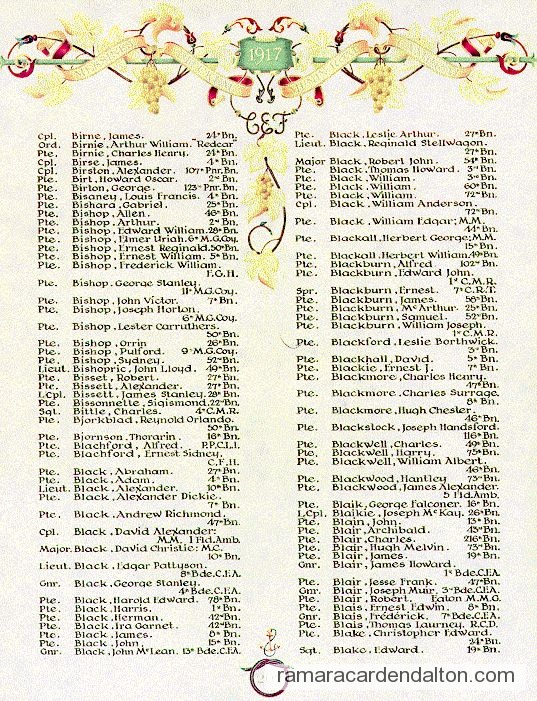 1917
C.E.F.
Cpl. Birnie, James. 24th Bn.
Ord. Birnie, Arthur William. "Redcar"
Pte. Birnie, Charles Henry. 24th Bn.
Cpl. Birse, James. 4th Bn.
Cpl. Birston, Alexander. 107th Pnr. Bn.
Pte. Birt, Howard Oscar. 2nd Bn.
Pte. Birton, George. 123rd Pnr. Bn.
Pte. Bisaney, Louis Francis. 4th Bn.
Pte. Bishara, Gabriel. 25th Bn.
Pte. Bishop, Allen. 46th Bn.
Pte. Bishop, Arthur. 2nd Bn.
Pte. Bishop, Edward William. 28th Bn.
Pte. Bishop, Elmer Uriah. 6th M.G.Coy.
Pte. Bishop, Ernest Reginald. 50th Bn.
Pte. Bishop, Ernest William. 5th Bn.
Pte. Bishop, Frederick William.
F.G.H.
Pte. Bishop, George Stanley.
11th M.G.Coy.
Pte. Bishop, John Victor. 7th Bn.
Pte. Bishop, Joseph Horton.
6th M.G.Coy.
Pte. Bishop, Lester Carruthers.
50th Bn.
Pte. Bishop, Orrin 26th Bn.
Pte. Bishop, Pulford. 9th M.G.Coy.
Pte. Bishop, Sydney. 52nd Bn.
Lieut. Bishopric, John Lloyd. 49th Bn.
Pte. Bisset, Robert. 27th Bn.
Pte. Bissett, Alexander. 27th Bn.
L.Cpl. Bissett, James Stanley. 28th Bn.
Pte. Bissonnette, Sigismond. 22nd Bn.
Sgt. Bittle, Charles. 4th C.M.R.
Pte. Bjorkblad, Reynold Orlando.
50th Bn.
Pte. Bjornson, Thorarin. 16th Bn.
Pte. Blachford, Alfred. P.P.C.L.I.
Pte. Blachford, Ernest Sidney.
C.F.H.
Pte. Black, Abraham. 27th Bn.
Pte. Black, Adam. 4th Bn.
Lieut. Black, Alexander. 10th Bn.
Pte. Black, Alexander Dickie.
7th Bn.
Pte. Black, Andrew Richmond.
47th Bn.
Cpl. Black, David Alexander;
M.M. 1 Fld.Amb.
Major. Black, David Christie; M.C.
10th Bn.
Lieut. Black, Edgar Pattyson.
8th Bde. C.F.A.
Gnr. Black, George Stanley.
4th Bde. C.F.A.
Pte. Black, Harold Edward. 78th Bn.
Pte. Black, Harris. 1st Bn.
Pte. Black, Herman. 42nd Bn.
Pte. Black, Ira Garnet. 42nd Bn.
Pte. Black, James. 8th Bn.
Pte. Black, John. 15th Bn.
Gnr. Black, John McLean. 13th Bde. C.F.A.
Pte. Black, Leslie Arthur. 27th Bn.
Lieut. Black, Reginald Stellwagon.
27th Bn.
Major Black, Robert John. 54th Bn.
Pte. Black, Thomas Howard. 3rd Bn.
Pte. Black, William. 3rd Bn.
Pte. Black, William. 60th Bn.
Pte. Black, William. 72nd Bn.
Cpl. Black, William Anderson.
72nd Bn.
Pte. Black, William Edgar; M.M.
44th Bn.
Pte. Blackall, Herbert George; M.M.
15th Bn.
Pte. Blackall, Herbert William. 49th Bn.
Pte. Blackburn, Alfred. 102nd Bn.
Pte. Blackburn, Edward John.
1st C.M.R.
Spr. Blackburn, Ernest. 7th C.R.T.
Pte. Blackburn, James. 58th Bn.
Pte. Blackburn, McArthur. 25th Bn.
Pte. Blackburn, Samuel. 52nd Bn.
Pte. Blackburn, William Joseph.
1st C.M.R.
Pte. Blackford, Leslie Borthwick.
3rd Bn.
Pte. Blackhall, David. 5th Bn.
Pte. Blackie, Ernest J. 7th Bn.
Pte. Blackmore, Charles Henry.
47th Bn.
Pte. Blackmore, Charles Surrage.
8th Bn.
Pte. Blackmore, Hugh Chesler.
46th Bn.
Pte. Blackstock, Joseph Handsford.
116th Bn.
Pte. Blackwell, Charles. 49th Bn.
Pte. Blackwell, Harry. 75th Bn.
Pte. Blackwell, William Albert.
46th Bn.
Pte. Blackwood, Huntley 73rd Bn.
Pte. Blackwood, James Alexander.
5 Fld.Amb.
Pte. Blaik, George Falconer. 16th Bn.
L.Cpl. Blaikie, Joseph McKay. 26th Bn.
Pte. Blain, John. 13th Bn.
Pte. Blair, Archibald. 43rd Bn.
Pte. Blair, Charles. 216th Bn.
Pte. Blair, Hugh Melvin. 73rd Bn.
Pte. Blair, James. 19th Bn.
Gnr. Blair, James Howard.
1st Bde. C.F.A.
Pte. Blair, Jesse Frank. 47th Bn.
Gnr. Blair, Joseph Muir. 3rd Bde. C.F.A.
Pte. Blair, Robert. Eaton M.M.G.
Pte. Blais, Ernest Edwin. 8th Bn.
Gnr. Blais, Frédérick. 7th Bde. C.F.A.
Pte. Blais, Thomas Laurney. R.C.D.
Pte. Blake, Christopher Edward.
24th Bn.
Sgt. Blake, Edward. 19th Bn.
ramaracardendalton.com